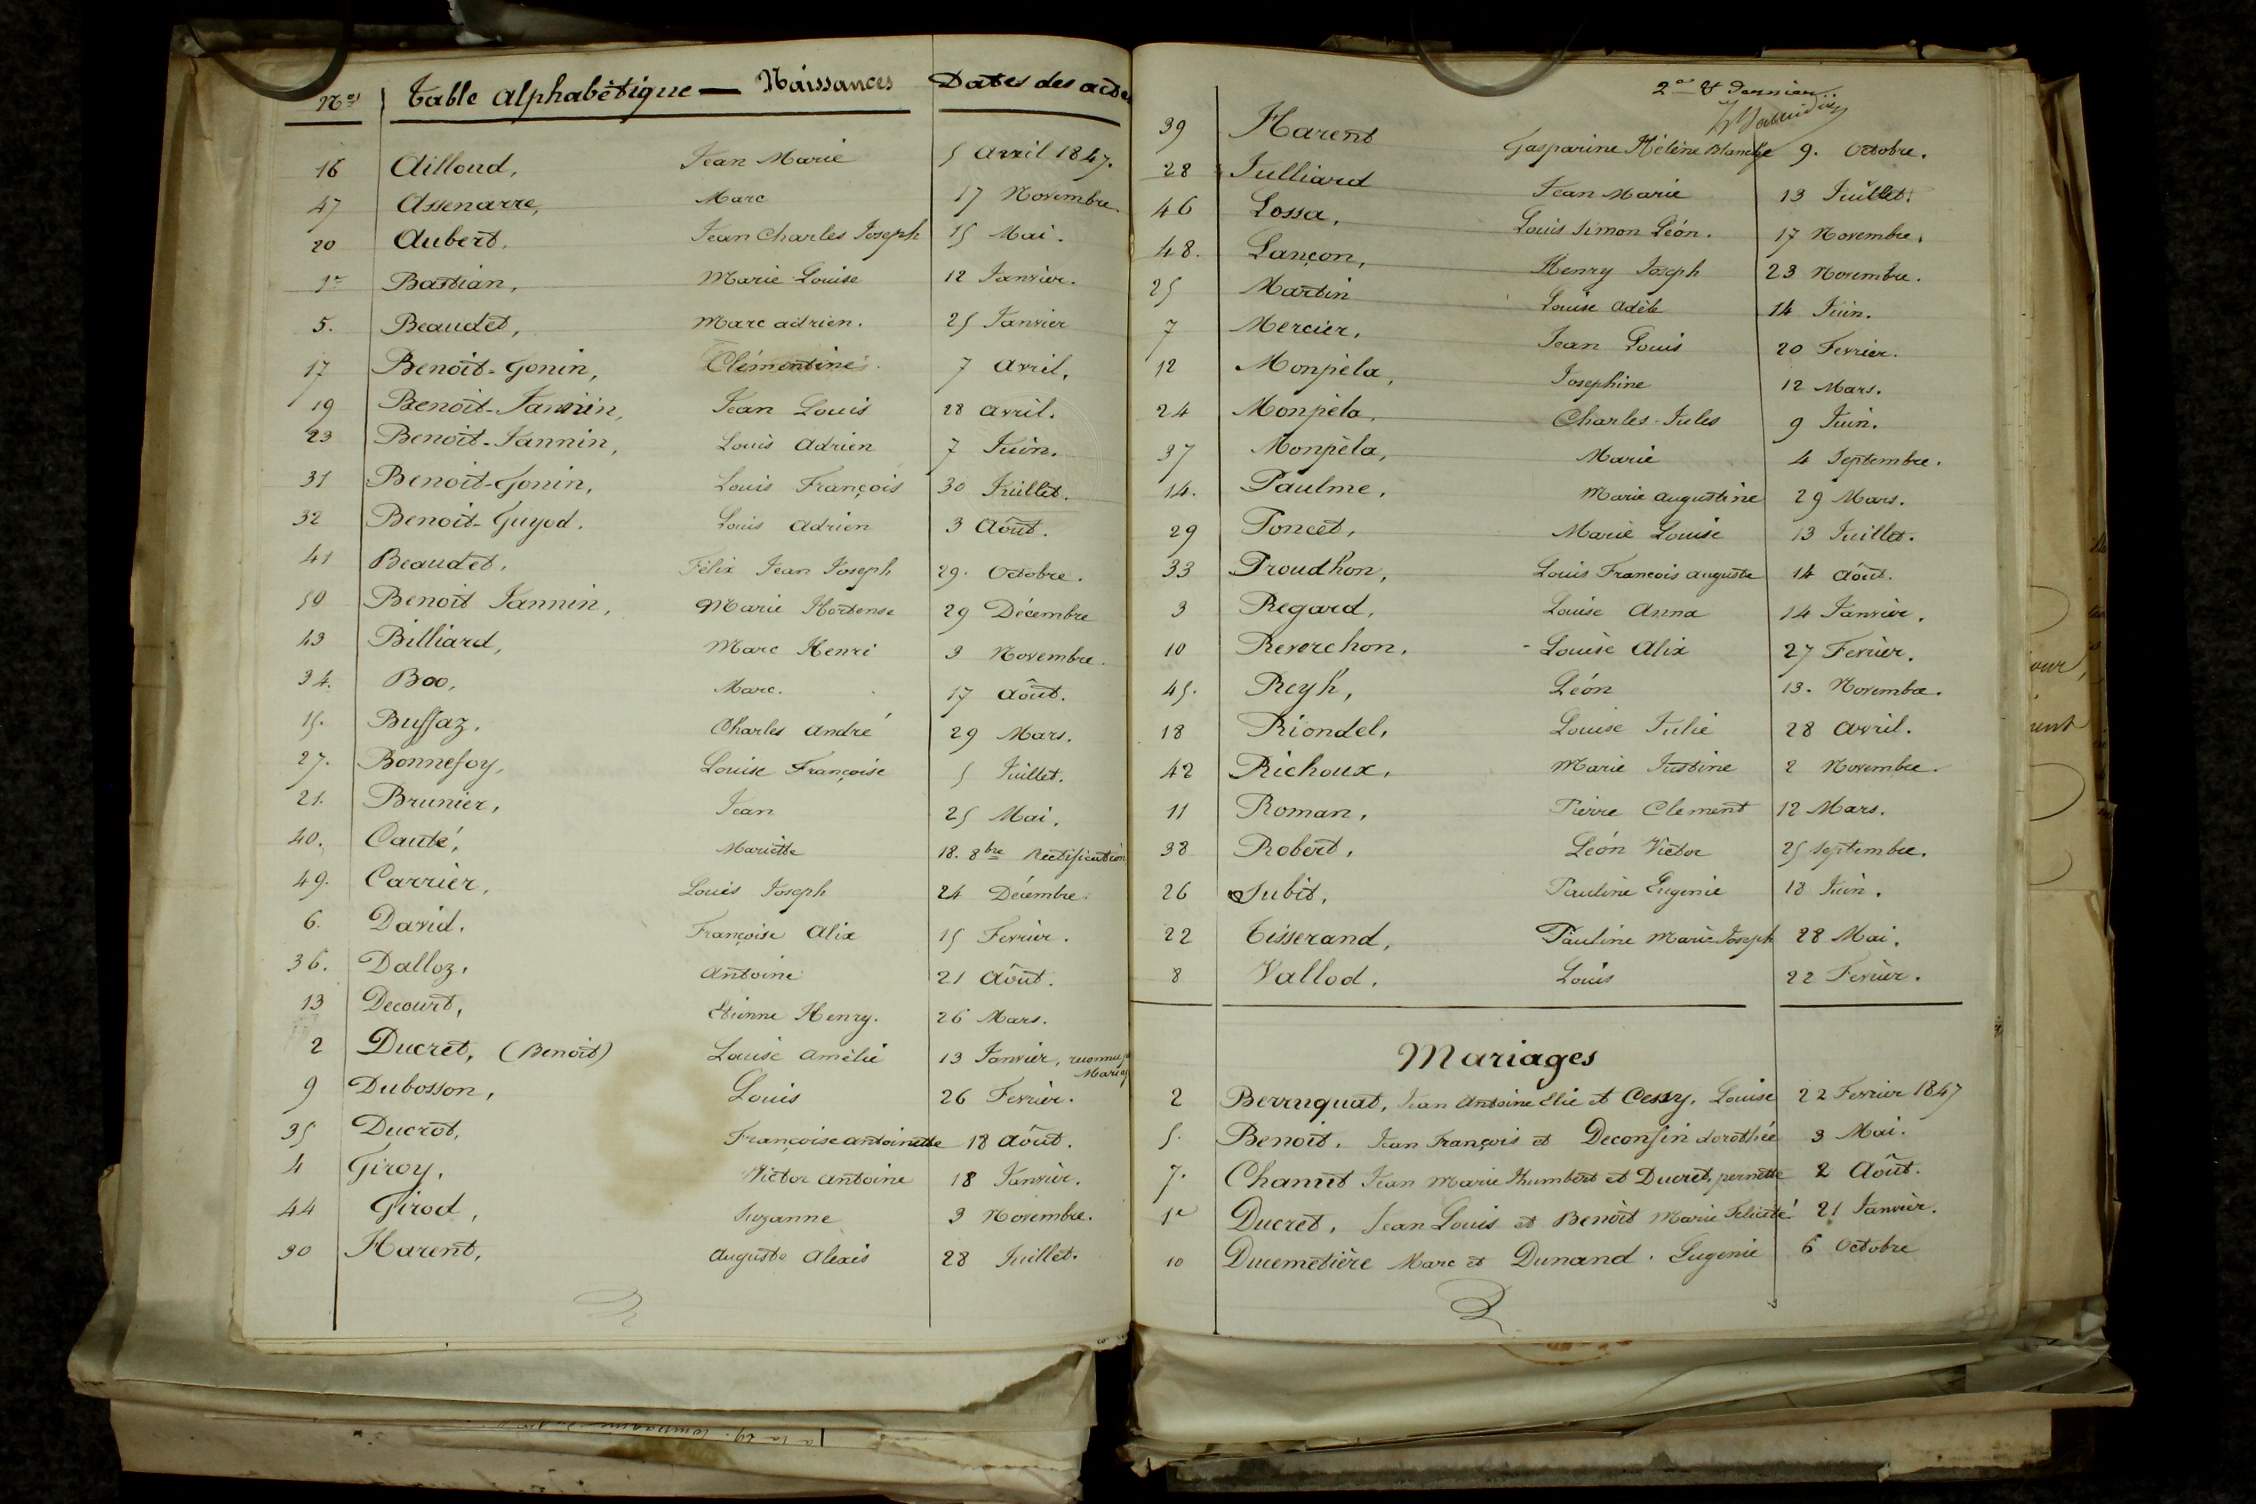 Nos Table alphabétique — Naissances Dates des actes
16 Ailloud, Jean Marie 5 avril 1847.
47 Assenarre, Marc 17 Novembre.
20 Aubert. Jean Charles Joseph 15 Mai.
1er Bastian, Marie Louise 12 Janvier.
5. Beaudet, Marc adrien. 25 Janvier
17 Benoît-Gonin, Clémentine 7 avril,
19 Benoit-Jannin, Jean Louis 28 avril.
23 Benoit-Jannin, Louis Adrien 7 Juin.
31 Benoit-Gonin, Louis François 30 Juillet.
32 Benoit-Guyod. Louis Adrien 3 Août.
41 Beaudet. Félix Jean Joseph 29. Octobre.
50 Benoit Jannin, Marie Hortense 29 Décembre
43 Billiard, Marc Henri 3 Novembre.
34. Boo, Marc. 17 Août.
15. Buffaz. Charles André 29 Mars.
27. Bonnefoy, Louise Françoise 5 Juillet.
21. Brunier, Jean 25 Mai.
40. Cauté, Mariette 18. 8bre Rectification
49. Carrier, Louis Joseph 24 Décembre.
6. David. Françoise Alix 15 Fevrier.
36. Dalloz. Antoine 21 Août.
13 Decourt, Etienne Henry. 26 Mars.
2 Ducret, (Benoit) Louise Amélie 13 Janvier, reconnue
Mariag
9 Dubosson, Louis 26 Fevrier.
35 Ducrot, Françoise antoinette 18 Août.
4 Giroy. Victor antoine 18 Janvier.
44 Girod, Suzanne 3 Novembre.
30 Harent, Auguste Alexis 28 Juillet.
2e & dernier.
39 Harent Gasparine Hélène Blanche 9. Octobre.
28 Julliard Jean Marie 13 Juillet.
46 Lossa, Louis Simon Léon. 17 Novembre.
48. Lançon, Henry Joseph 23 Novembre.
25 Martin Louise Adèle 14 Juin.
7 Mercier, Jean Louis 20 Fevrier.
12 Monpèla, Josephine 12 Mars.
24 Monpèla, Charles-Jules 9 Juin.
37 Monpèla, Marie 4 Septembre.
14. Paulme, Marie augustine 29 Mars.
29 Poncet, Marie Louise 13 Juillet.
33 Proudhon, Louis Francois auguste 14 Août.
3 Regard, Louise Anna 14 Janvier.
10 Reverchon, Louise Alix 27 Fevrier.
45. Reyh, Léon 13. Novembre.
18 Riondel, Louise Julie 28 Avril.
42 Richoux, Marie Justine 2 Novembre.
11 Roman, Pierre Clement 12 Mars.
38 Robert, Léon Victor 25 Septembre.
26 Subit, Pauline Eugenie 18 Juin.
22 Tisserand, Pauline Marie Joseph 28 Mai.
8 Vallod, Louis 22 Fevrier.
Mariages
2 Berruquat, Jean Antoine Elie et Cessy, Louise 22 Fevrier 1847
5. Benoit, Jean François et Deconfin dorothée 3 Mai.
7. Chamit Jean Marie Humbert et Ducret, pernette 2 Août.
1e Ducret, Jean Louis et Benoit Marie Felicité 21 Janvier.
10 Ducemetière Marc et Dunand. Eugenie 6 Octobre